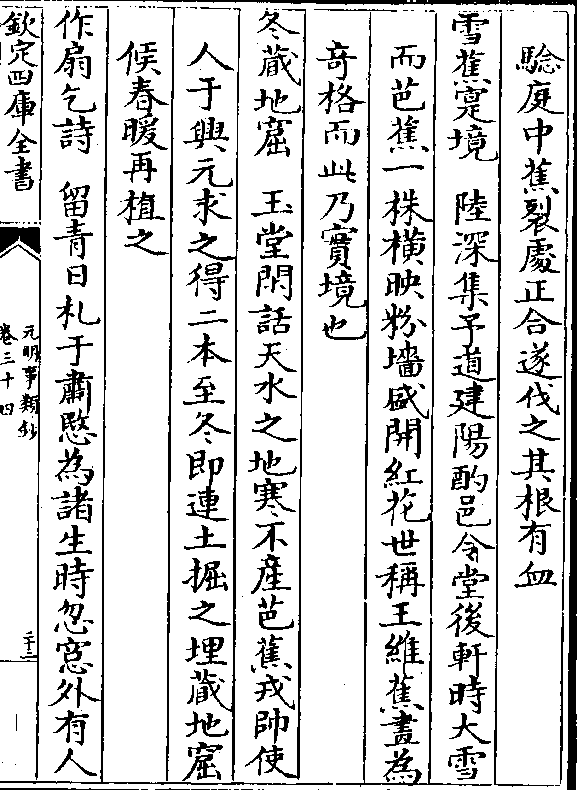 驗庭中蕉裂處正合遂伐之其根有血
雪蕉寔境　陸深集予道建陽酌邑令堂後軒時大雪
而芭蕉一株橫映粉墻盛開紅花世稱王維蕉畫為
奇格而此乃實境也
冬藏地窟　玉堂閒話天水之地寒不產芭蕉戎帥使
人于興元求之得二本至冬即連土掘之埋藏地窟
候春暖再植之
作扇乞詩　留青日札于肅愍為諸生時忽窓外有人
欽定四庫全書
元明事類鈔
卷三十四
三十二